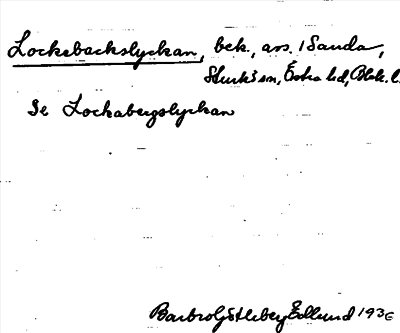 Lockebackslyckan, bek., avs. 1 Sanda,
Sturkö sn, Östra hd, Blek. l.
Se Lockabergslyckan
Barbro Götleby Edlund 1936